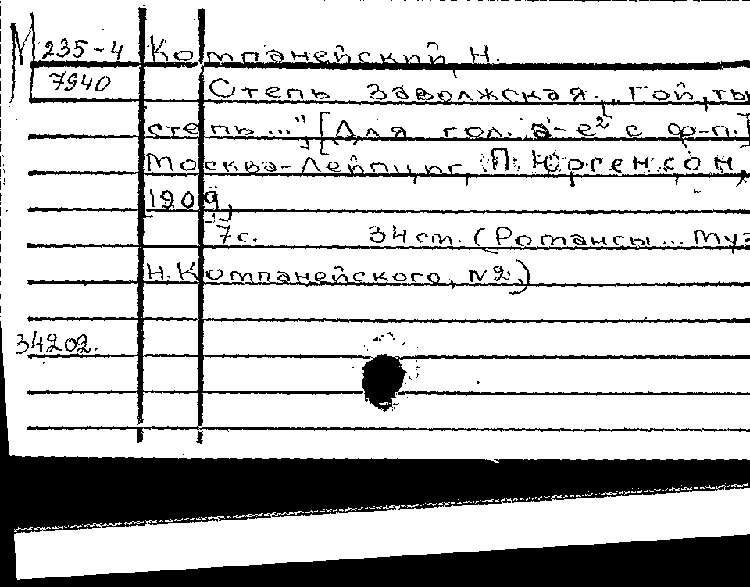 М 235-4 Компанейский, Н.
7940 Степь Заволжская. „Гой, ты
степь..." [Для гол. a-e² с ф-п.]
Москва-Лейпциг, П. Юргенсон,
[1909],
7с. 34 ст. (Романсы... Муз
Н. Компанейского, №2.)
34202.